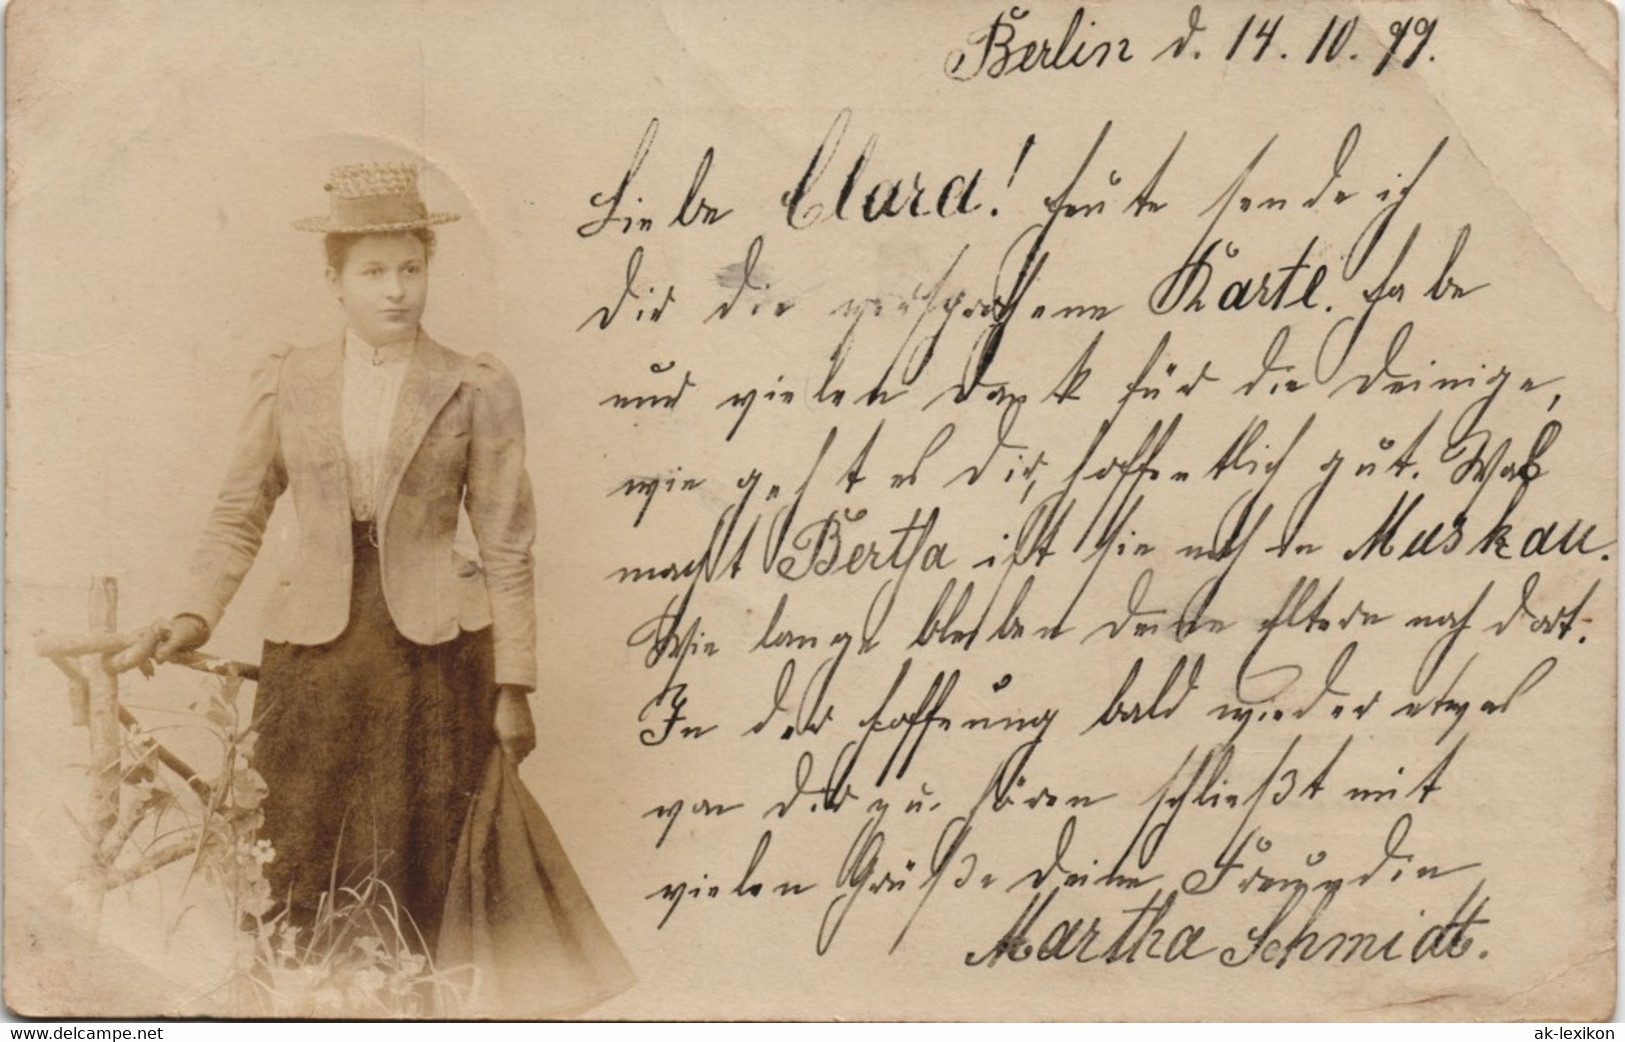 Berlin d. 14. 10. 99.
Liebe Clara! heute sende ich
Dir die versprochene Karte. habe
nur vielen Dank für die Deinige,
wie geht es Dir, hoffentlich gut. Was
macht Bertha ist sie noch in Muskau.
Wie lange bleiben Deine Eltern noch dort.
In der Hoffnung bald wieder etwas
von Dir zu hören schließt mit
vielen Grüße Deine Freundin
Martha Schmidt.
www.delcampe.net
ak-lexikon